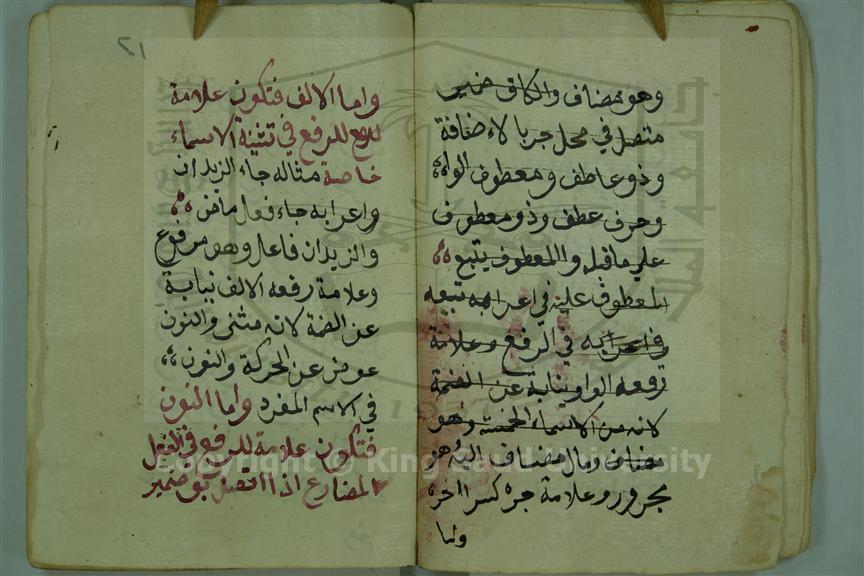 وهو مضاف والكاف ضمير
متصل في محل جر بالاضافة
وذو عاطف ومعطوف الواو
وحرف عطف وذو معطوف
علي ماقبله والمعطوف يتبع
المعطوف عليه في اعرابه تبعه
في اعرابه في الرفع وعلامة
رفعه الواو نيابة عن الضمة
لانه من الاسماء الخمسة وهو
مضاف ومال مضاف اليه وهو
مجرور وعلامة جره كسر اخره
ولما
٢١
واما الالف فتكون علامة
للرفع للرفع في تثنية الاسماء
خاصة مثاله جاء الزيدان
واعرابه جاء فعل ماض
والزيدان فاعل وهو مرفوع
وعلامة رفعه الالف نيابة
عن الضمة لانه مثنى والنون
عوض عن الحركة والنون
في الاسم المفرد واما النون
فتكون علامة للرفع في الفعل
المضارع اذا اتصل به ضمير
Copyright © King Saud University